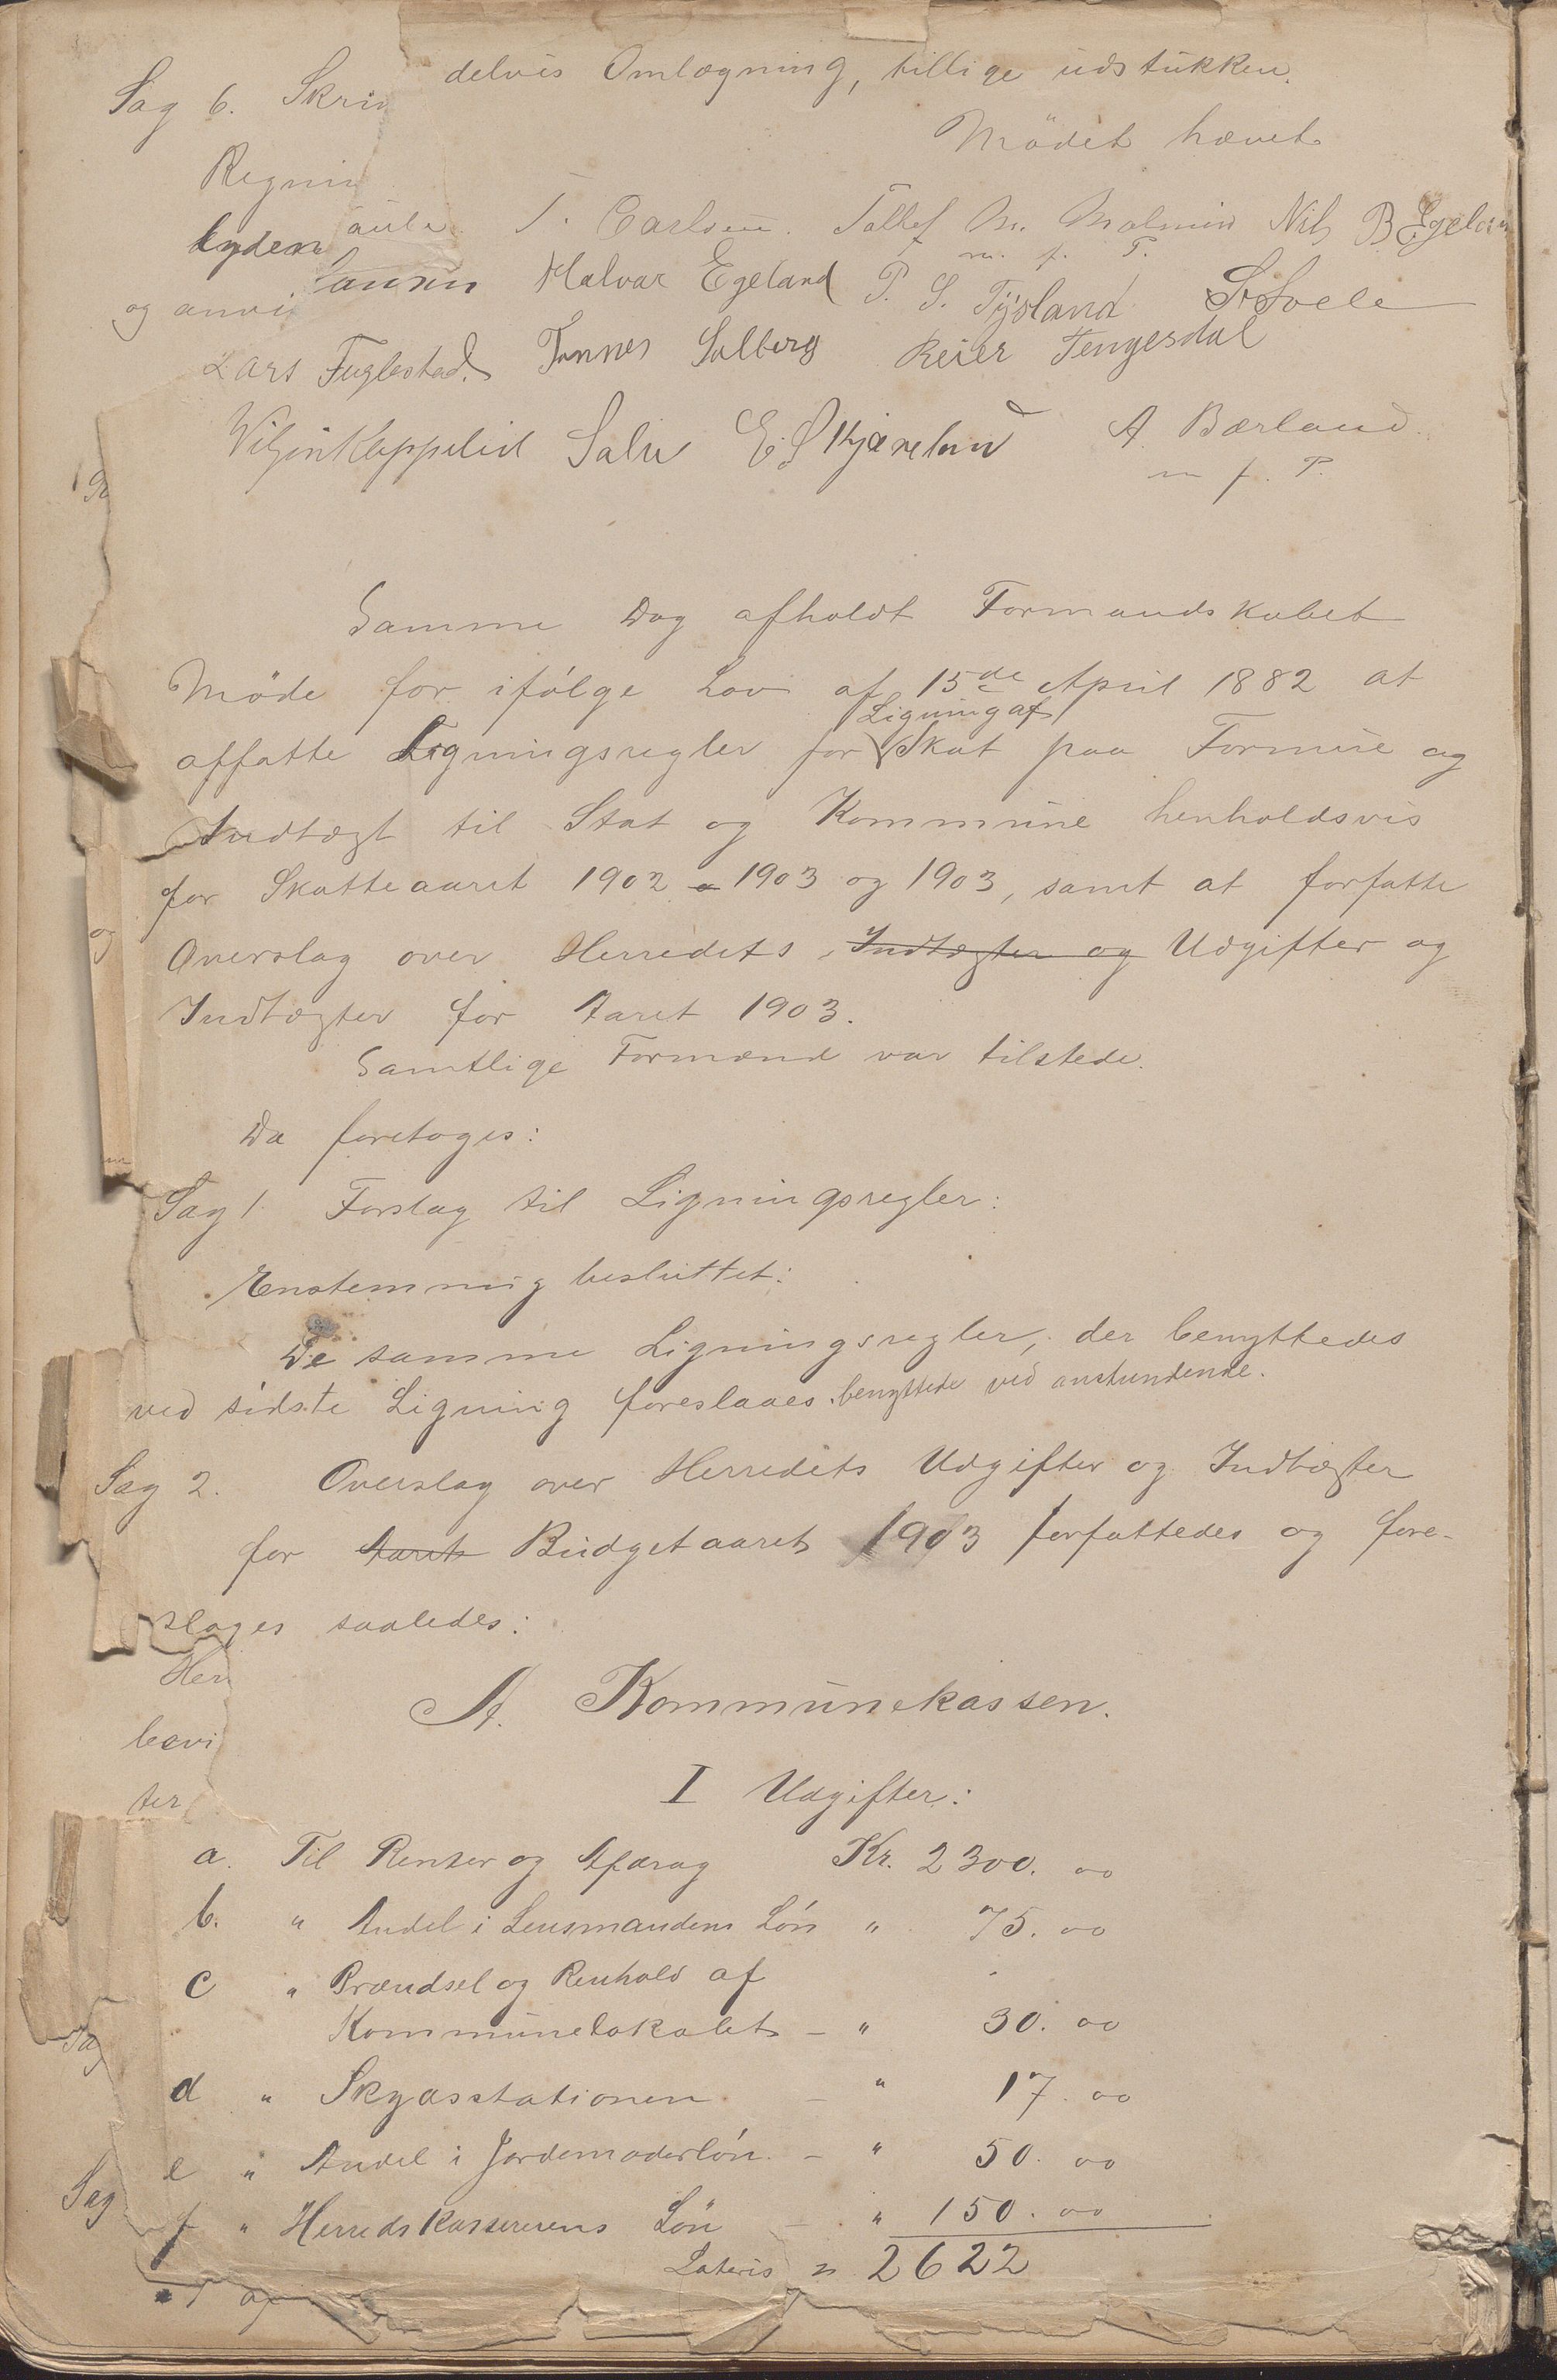 delvis Omlægning, tillige udstukken.
Sag 6. Skriv
Mödet hævet
Regnin
T. Carlsen. Tollef M. Malmin Nils B Egelan
lyden
m. f. P.
Halvar Egeland P. S. Tysland
og anvi
Lars Fuglestad. Tønnes Salberg Reier Tengesdal
Salve E. Skjæreland A. Bærland
m f. P.
Samme Dag afholdt Formandskabet
Möde for ifölge Lov af 15de April 1882 at
Ligning af
affatte Ligningsregler for Skat paa Formue og
Indtægt til Stat og Kommune henholdsvis
for Skatteaaret 1902 1903 og 1903, samt at forfatte
Overslag over Herredets Indtægter og Udgifter og
og
Indtægter for Aaret 1903.
Samtlige Formænd var tilstede.
Da foretoges:
Sag 1 Forslag til Ligningsregler:
Enstemmig besluttet:
De samme Ligningsregler, der benyttedes
ved sidste Ligning foreslaaes benyttede ved anstundende.
Sag 2. Overslag over Herredets Udgifter og Indtægter
for Aarets Budgetaaret 1903 forfattedes og fore-
slages saaledes:
Her
A. Kommunekassen.
bevi
I Udgifter:
ter
a. Til Renter og Afdrag Kr. 2300. 00
b. " Andel i Lensmandens Lön " 75. 00
c " Brændsel og Renhold af
Kommunelokalet - " 30. 00
d " Skydsstationen - " 17. 00
e " Andel i Jordemoderlön - " 50. 00
Sag
f " Herredskassererens Lön - " 150. 00
Lateris " 2622